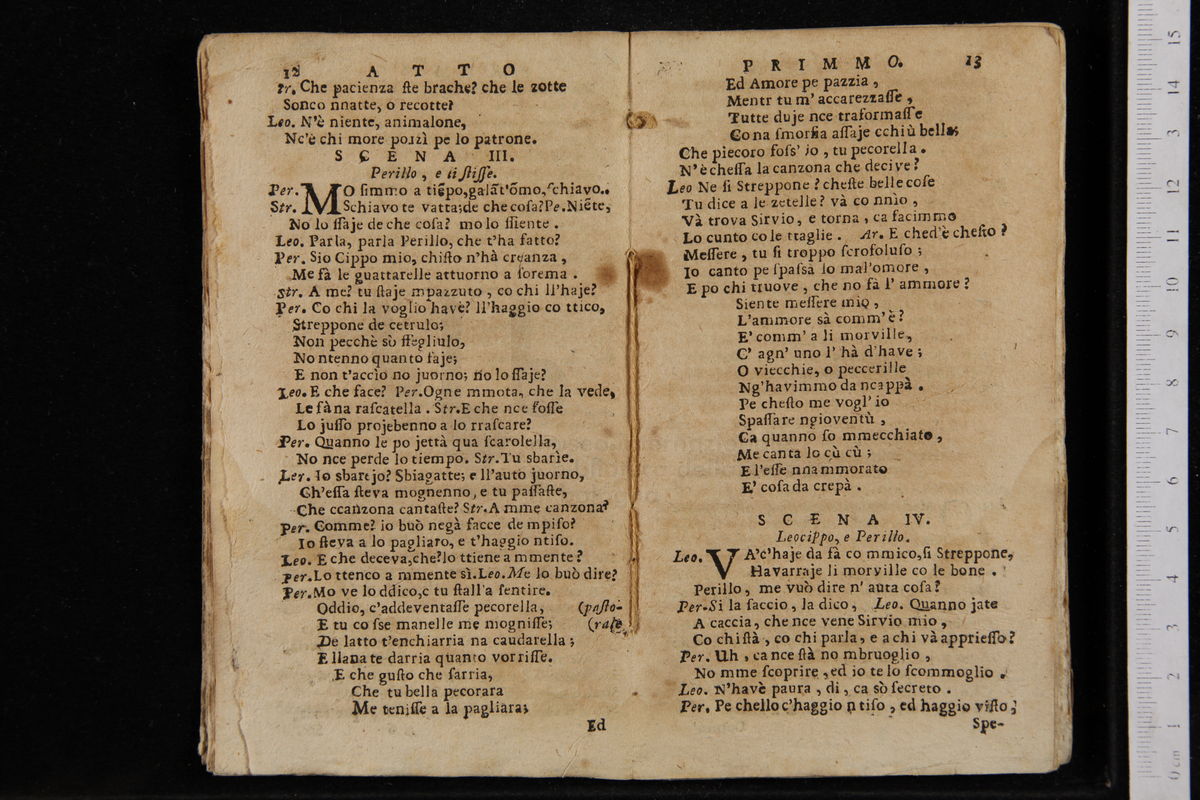 12 ATTO
Pr. Che pacienza ſte brache? che le zotte
Sonco nnatte, o recotte?
Leo. N'è niente, animalone,
Nc'è chi more pozzì pe lo patrone.
SCENA III.
Perillo, e li ſtiſſe.
Per. MO ſimmo a tiẽpo, galãt'õmo, ſchiavo..
Str. Schiavo te vatta; de che coſa? Pe. Niẽte,
No lo ſſaje de che coſa? mo lo ſſiente.
Leo. Parla, parla Perillo, che t'ha fatto?
Per. Sio Cippo mio, chiſto n'hà creanza,
Me fà le guattarelle attuorno a ſorema.
Str. A me? tu ſtaje mpazzuto, co chi ll'haje?
Per. Co chi la voglio havè? ll'haggio co ttico,
Streppone de cetrulo;
Non pecchè sò ffegliulo,
No ntenno quanto faje;
E non t'accìo no juorno; no lo ſſaje?
Leo. E che face? Per. Ogne mmota, che la vede,
Le fà na raſcatella. Str. E che nce foſſe
Lo juſſo projebenno a lo rraſcare?
Per. Quanno le po jettà qua ſcarolella,
No nce perde lo tiempo. Str. Tu sbarìe.
Per. Io sbarejo? Sbiagatte; e ll'auto juorno,
Ch'eſſa ſteva mognenno, e tu paſſaſte,
Che ccanzona cantaſte? Str. A mme canzona?
Per. Comme? io buò negà facce de mpiſo?
Io ſteva a lo pagliaro, e t'haggio ntiſo.
Leo. E che deceva, che? lo ttiene a mmente?
Per. Lo ttenco a mmente sì. Leo. Me lo buò dire?
Per. Mo ve lo ddico, e tu ſtall'a ſentire.
Oddio, c'addeventaſſe pecorella, (paſto-
E tu co ſse manelle me mogniſſe; (rale
De latto t'enchiarria na caudarella;
E llana te darria quanto vorriſſe.
E che guſto che ſarria,
Che tu bella pecorara
Me teniſſe a la pagliara;
Ed
PRIMMO. 13
Ed Amore pe pazzia,
Mentr tu m' accarezzaſſe,
Tutte duje nce traformaſſe
Co na ſmorfia aſſaje cchiù bella;
Che piecoro foſs' io, tu pecorella.
N'è cheſſa la canzona che decive?
Leo Ne ſi Streppone? cheſte belle coſe
Tu dice a le zetelle? và co nnìo,
Và trova Sirvio, e torna, ca facimmo
Lo cunto co le ttaglie. Ar. E ched'è cheſto?
Meſſere, tu ſi troppo ſcrofoluſo;
Io canto pe ſpaſsà lo mal'omore,
E po chi truove, che no fà l' ammore?
Siente meſſere mio,
L'ammore sà comm'è?
E' comm' a li morville,
C' agn' uno l' hà d'have;
O viecchie, o peccerille
Ng'havimmo da ncappà.
Pe cheſto me vogl' io
Spaſſare ngioventù,
Ca quanno ſo mmecchiato,
Me canta lo cù cù;
E l'eſſe nnammorato
E' coſa da crepà.
SCENA IV.
Leocippo, e Perillo.
Leo. VA'c'haje da fà co mmico, ſi Streppone,
Havarraje li morville co le bone.
Perillo, me vuò dire n' auta coſa?
Per. Si la faccio, la dico, Leo. Quanno jate
A caccia, che nce vene Sirvio mio,
Co chi ſtà, co chi parla, e a chi và apprieſſo?
Per. Uh, ca nce ſtà no mbruoglio,
No mme ſcoprire, ed io te lo ſcommoglio.
Leo. N'havè paura, di, ca sò ſecreto.
Per. Pe chello c'haggio ntiſo, ed haggio viſto;
Spe-